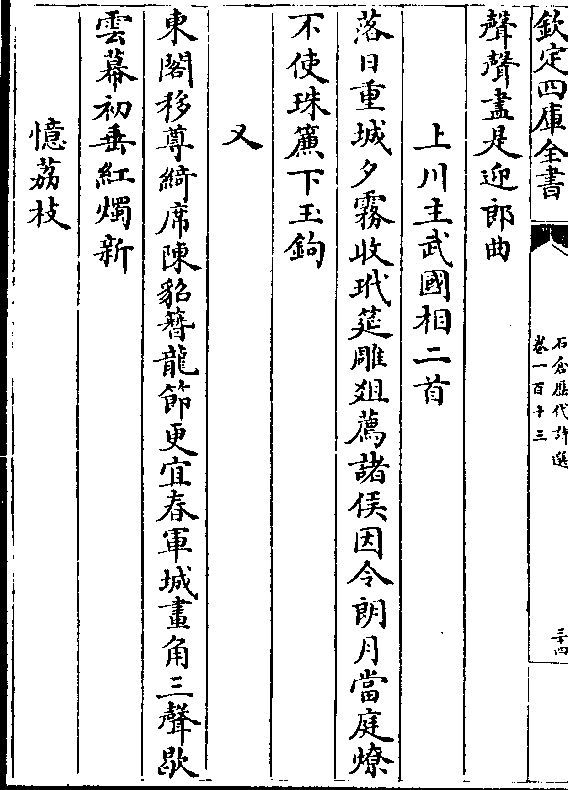 欽定四庫全書
石倉歴代詩選
卷一百十三
三十四
聲聲盡是迎郎曲
上川主武國相二首
落日重城夕霧收玳筵雕俎薦諸侯因令朗月當庭燎
不使珠簾下玉鉤
又
東閣移尊綺席陳貂簪龍節更宜春軍城畫角三聲歇
雲幕初垂紅燭新
憶荔枝